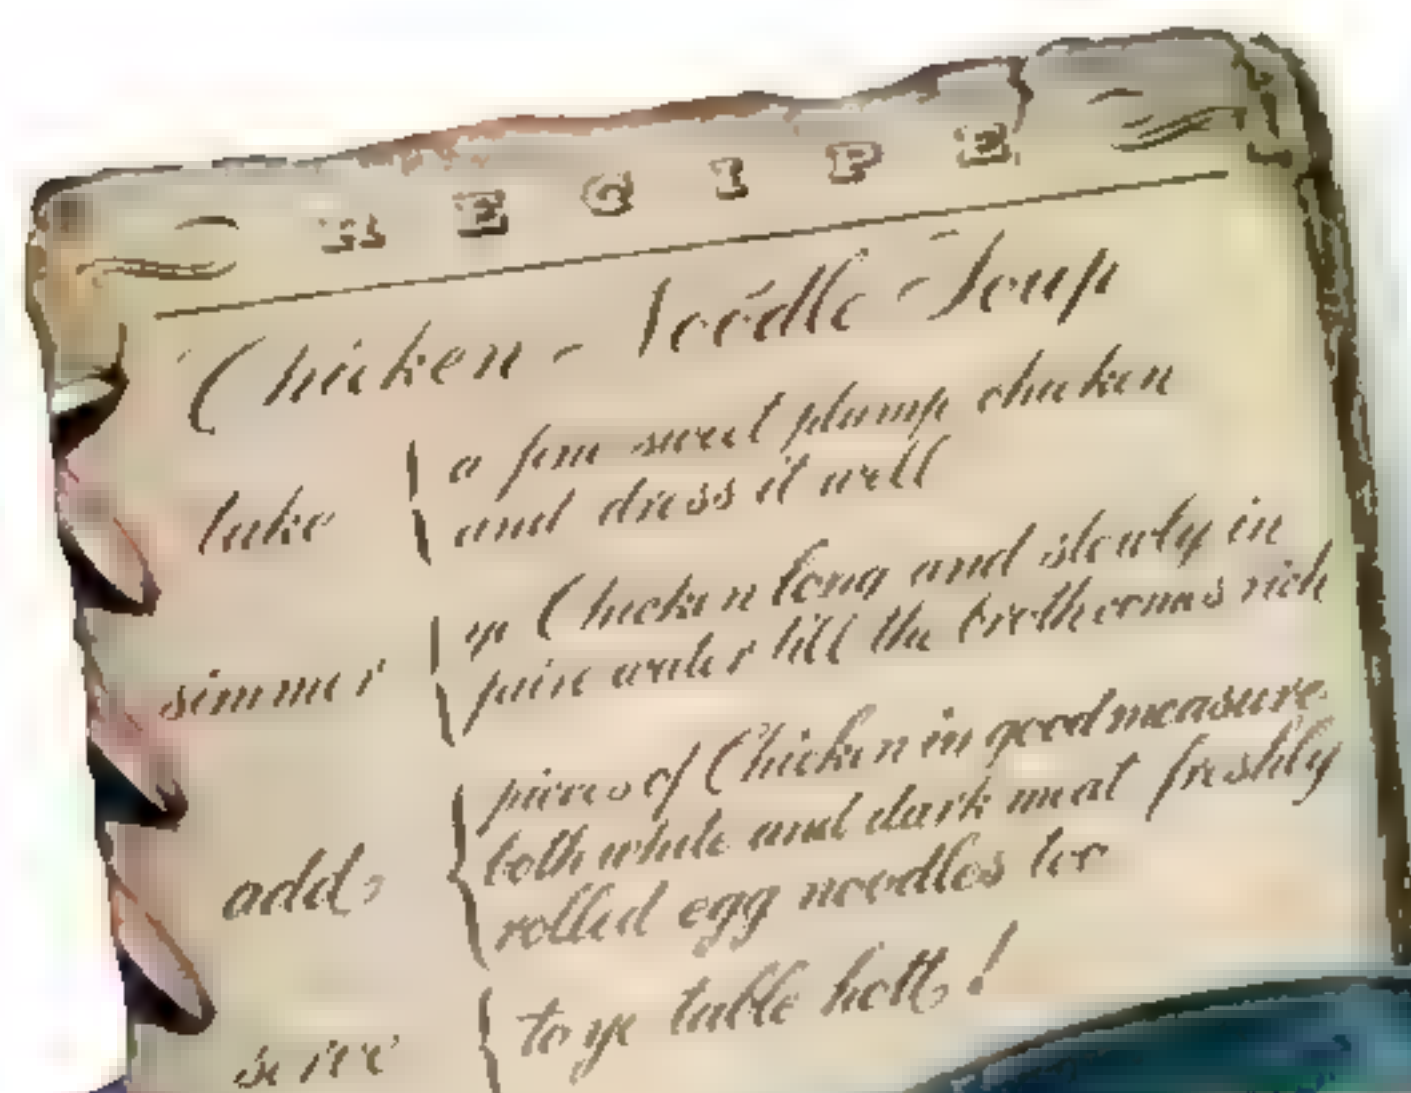 RECIPE
Chicken-Noodle Soup
take
a fine sweet plump chicken
and dress it well
simmer
ye Chicken long and slowly in
pure water till the broth comes rich
add
pieces of Chicken in good measure
both white and dark meat freshly
rolled egg noodles too
serve
to ye table hott!